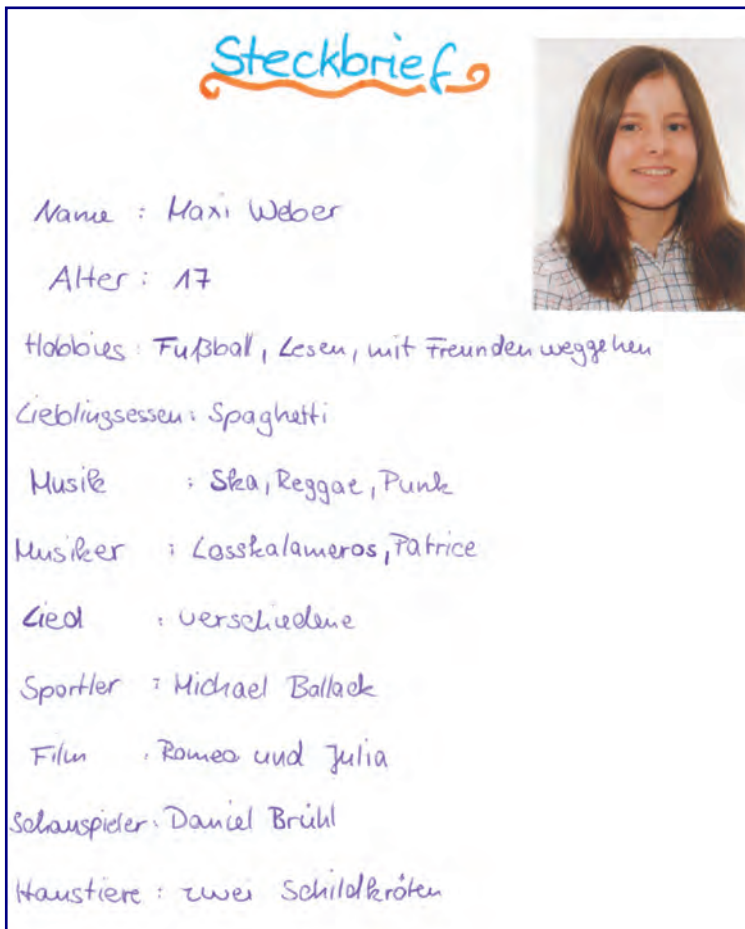 Steckbrief
Name : Maxi Weber
Alter : 17
Hobbies : Fußball, Lesen, mit Freunden weggehen
Lieblingsessen : Spaghetti
Musik : Ska, Reggae, Punk
Musiker : Losskalameros, Patrice
Lied : verschiedene
Sportler : Michael Ballack
Film : Romeo und Julia
Schauspieler : Daniel Brühl
Haustiere : zwei Schildkröten